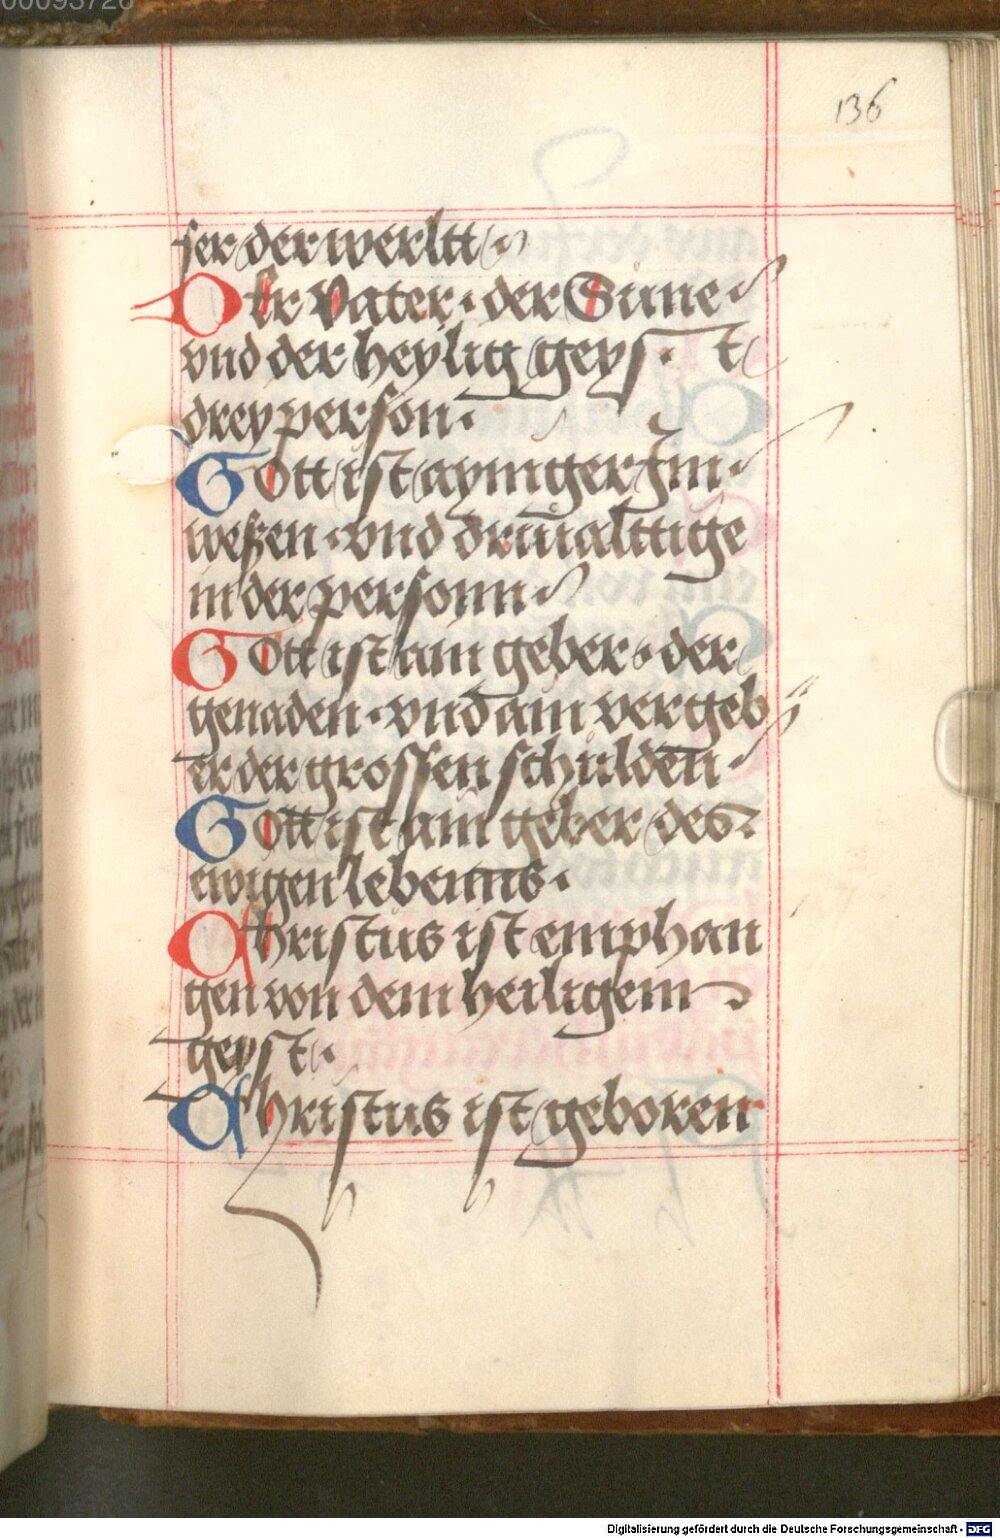 00093726
136
ser der werltt
Der Vater · der Sune
vnd der heylig geyst
drey person ·
Gott ist ayniger Im
weßen · vnd driualttige
in der personn
Gott ist ain geber · der
genaden · vnd ain vergeb
er der grossen schulden
Gott ist ain geber des
ewigen lebenns ·
Christus ist emphan
gen von dem heiligem
geyst ·
Christus ist geboren
Digitalisierung gefördert durch die Deutsche Forschungsgemeinschaft - DFG